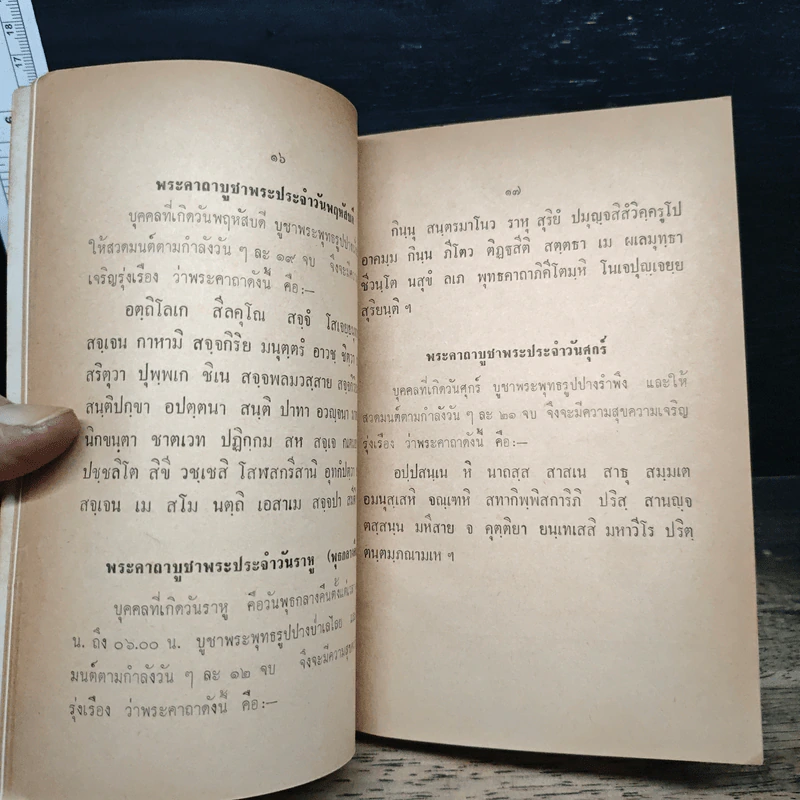 18
17
๑๖
พระคาถาบูชาพระประจำวันพฤหัสบดี
บุคคลที่เกิดวันพฤหัสบดี บูชาพระพุทธรูปปาง
ให้สวดมนต์ตามกำลังวัน ๆ ละ ๑๙ จบ จึงจะมี
เจริญรุ่งเรือง ว่าพระคาถาดังนี้ คือ:—
อตฺถิโลเก สีลคุโณ สจฺจํ
สจฺเจน กาหามิ สจฺจกิริย มนุตฺตรํ อาวชฺ
สริตฺวา ปุพฺพเก ชิเน สจฺจพลมวสฺสาย
สนฺติปกฺขา อปตฺตนา สนฺติ ปาทา อวญฺจนา
นิกขนฺตา ชาตเวท ปฏิกฺกม สห สจฺเจ
ปชฺชลิโต สิขี วชฺเชสิ โสฬสกรีสานิ
สจฺเจน เม สโม นตฺถิ เอสาเม สจฺจปา
พระคาถาบูชาพระประจำวันราหู
บุคคลที่เกิดวันราหู คือวันพุธกลางคืนตั้งแต่
น. ถึง ๐๖.๐๐ น. บูชาพระพุทธรูปปางป่าเลไลย
มนต์ตามกำลังวัน ๆ ละ ๑๒ จบ จึงจะมีความสุข
รุ่งเรือง ว่าพระคาถาดังนี้ คือ:—
๑๗
กินฺนุ สนฺตรมาโนว ราหุ สุริยํ ปมุญฺจสิสํวิคฺครูโป
อาคมฺม กินฺน ภีโตว ติฏฺฐสีติ สตฺตธา เม ผเลมุทฺธา
ชีวนฺโต นสุขํ ลเภ พุทธคาถาภิคีโตมฺหิ โนเจปุญฺเจยฺย
สุริยนฺติ ฯ
พระคาถาบูชาพระประจำวันศุกร์
บุคคลที่เกิดวันศุกร์ บูชาพระพุทธรูปปางรำพึง และให้
สวดมนต์ตามกำลังวัน ๆ ละ ๒๑ จบ จึงจะมีความสุขความเจริญ
รุ่งเรือง ว่าพระคาถาดังนี้ คือ:—
อปฺปสนฺเน หิ นาถสฺส สาสเน สาธุ สมฺมเต
อมนุสฺเสหิ จณฺเฑหิ สทากิพฺพิสการิภิ ปริสฺ สานญฺจ
ตสฺสนฺน มหึสาย จ คุตฺติยา ยนฺเทเสสิ มหาวีโร ปริตฺ
ตนฺตมฺภณามเห ฯ